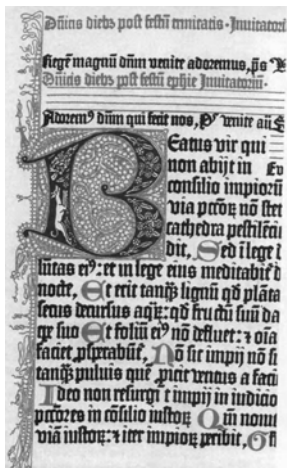 Dñicis diebȝ post festũ trinitatis · Inuitatori
Regẽ magnũ dñm venite adoremus, ps
Dñicis diebȝ post festũ ephie Inuitatoriũ ·
Adorem⁹ dñm qui fecit nos, Ps venite añ E
Beatus vir qui
non abijt in Ev
consilio impiorũ
via pccõꝝ nõ stet
cathedra pestilẽci
dit, Sed ĩ lege
lũtas ei⁹: et in lege eius meditabit᷑ d
nocte, Et erit tanqȝ lignũ qd̃ plãta
secus decursus aqꝝ: qd̃ fructũ suũ da
tꝑe suo Et foliũ ei⁹ nõ defluet: ⁊ oĩa
faciet, ꝓsperabũt᷑, Nõ sic impij nõ si
tanqȝ puluis quẽ ꝓicit ventus a faci
Ideo non resurgũt impij in iudicio
pccõres in cõsilio iustoꝝ Qm̃ nouit
viã iustoꝝ: ⁊ iter impioꝝ peribit,